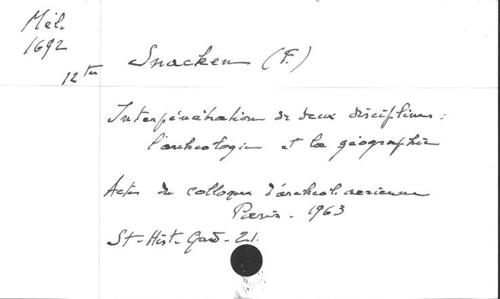 Mél.
1692
12 ter
Snacken (F.)
Interpénétration de deux disciplines :
l'archéologie et la géographie
Actes du colloque d'archéol. aerienne
Paris - 1963
St-Hist-Gand-21.